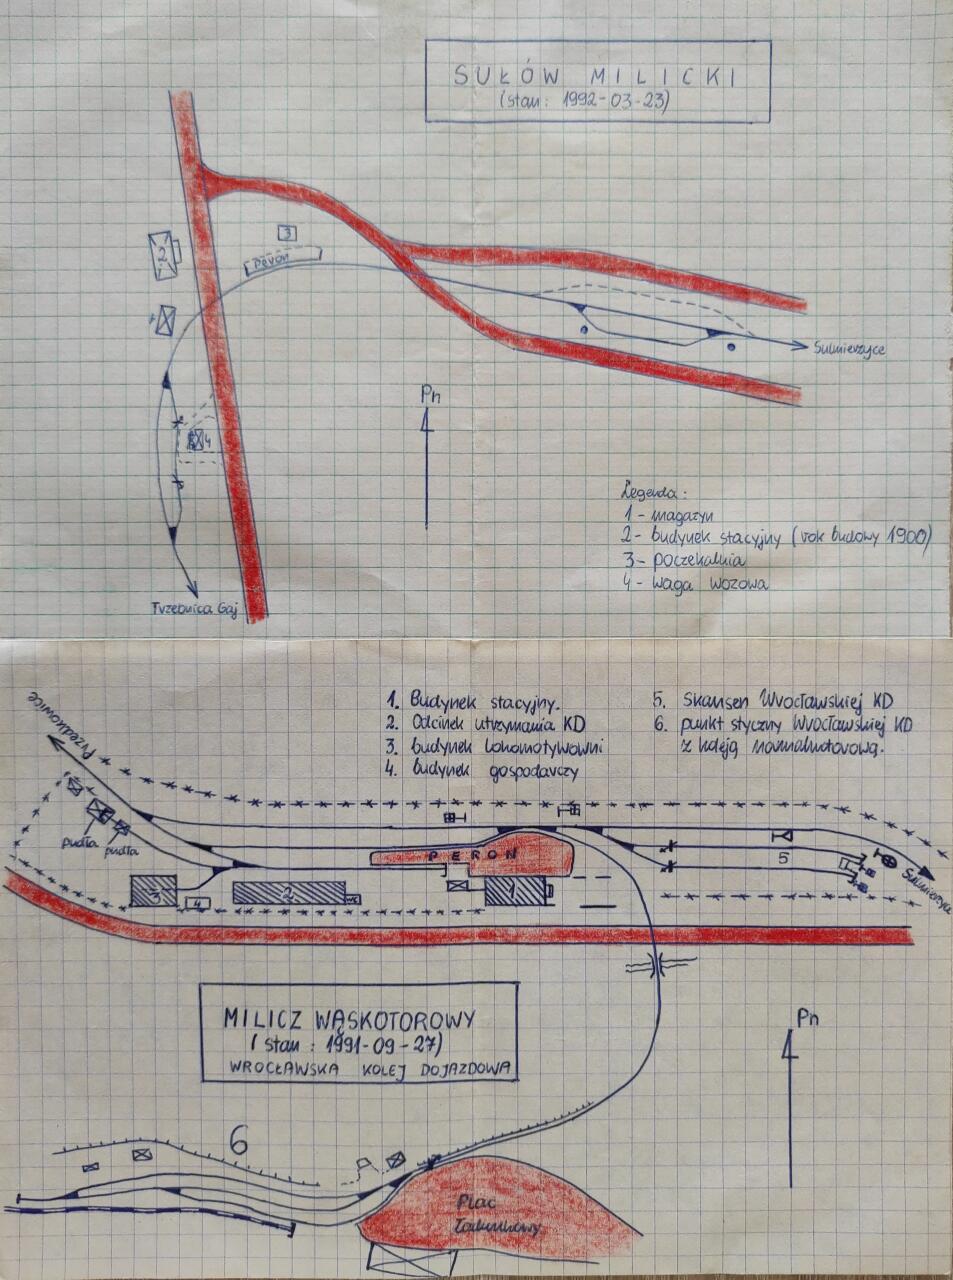 SUŁÓW MILICKI
(stan: 1992-03-23)
2
3
Peron
4
Sulmierzyce
Pn
Legenda:
1 - magazyn
2 - budynek stacyjny (rok budowy 1900)
3 - poczekalnia
4 - waga wozowa
Trzebnica Gaj
1. Budynek stacyjny.
2. Odcinek utrzymania KD
3. budynek lokomotywowni
4. budynek gospodarczy
5. Skansen Wrocławskiej KD
6. punkt styczny Wrocławskiej KD
z koleją normalnotorową.
Przedkowice
pudła
pudła
PERON
5
Sulmierzyce
3
4
2
WC
1
MILICZ WĄSKOTOROWY
(stan: 1991-09-27)
WROCŁAWSKA KOLEJ DOJAZDOWA
Pn
6
Plac
Ładunkowy